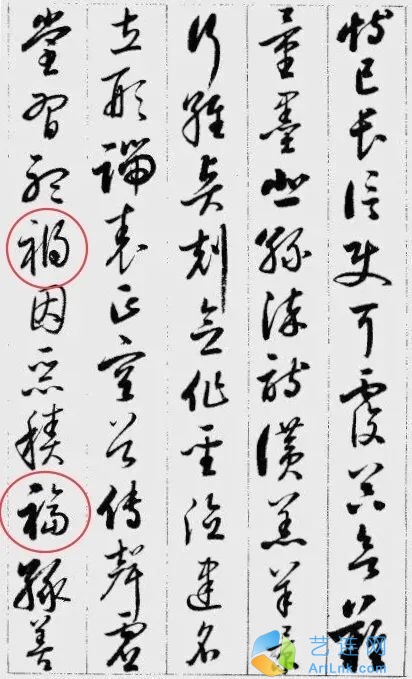 恃己長信使可覆器欲難
量墨悲絲染詩讚羔羊景
行維賢剋念作聖德建名
立形端表正空谷傳聲虛
堂習聽禍因惡積福緣善
艺连网
ArtLnk.com